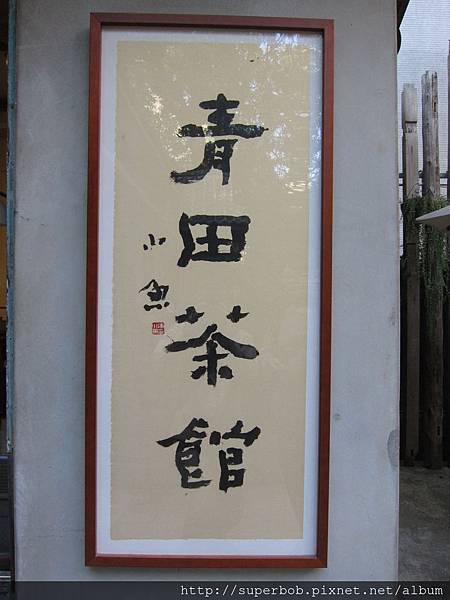 青田茶館
小魚
http://superbob.pixnet.net/album